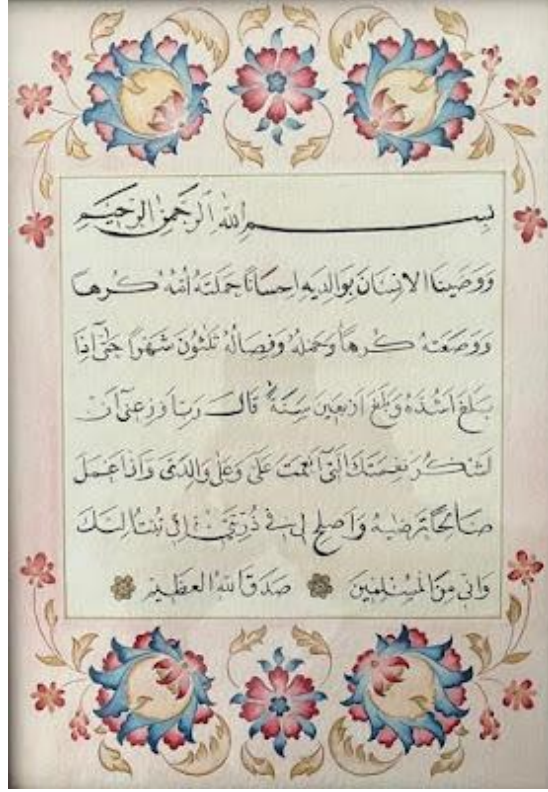 بسم الله الرحمن الرحيم
ووصينا الانسان بوالديه احسانا حملته امه كرها
ووضعته كرها وحمله وفصاله ثلثون شهرا حتى اذا
بلغ اشده وبلغ اربعين سنة قال رب اوزعنى ان
اشكر نعمتك التى انعمت على وعلى والدى وان اعمل
صالحا ترضيه واصلح لى فى ذريتى انى تبت اليك
وانى من المسلمين صدق الله العظيم